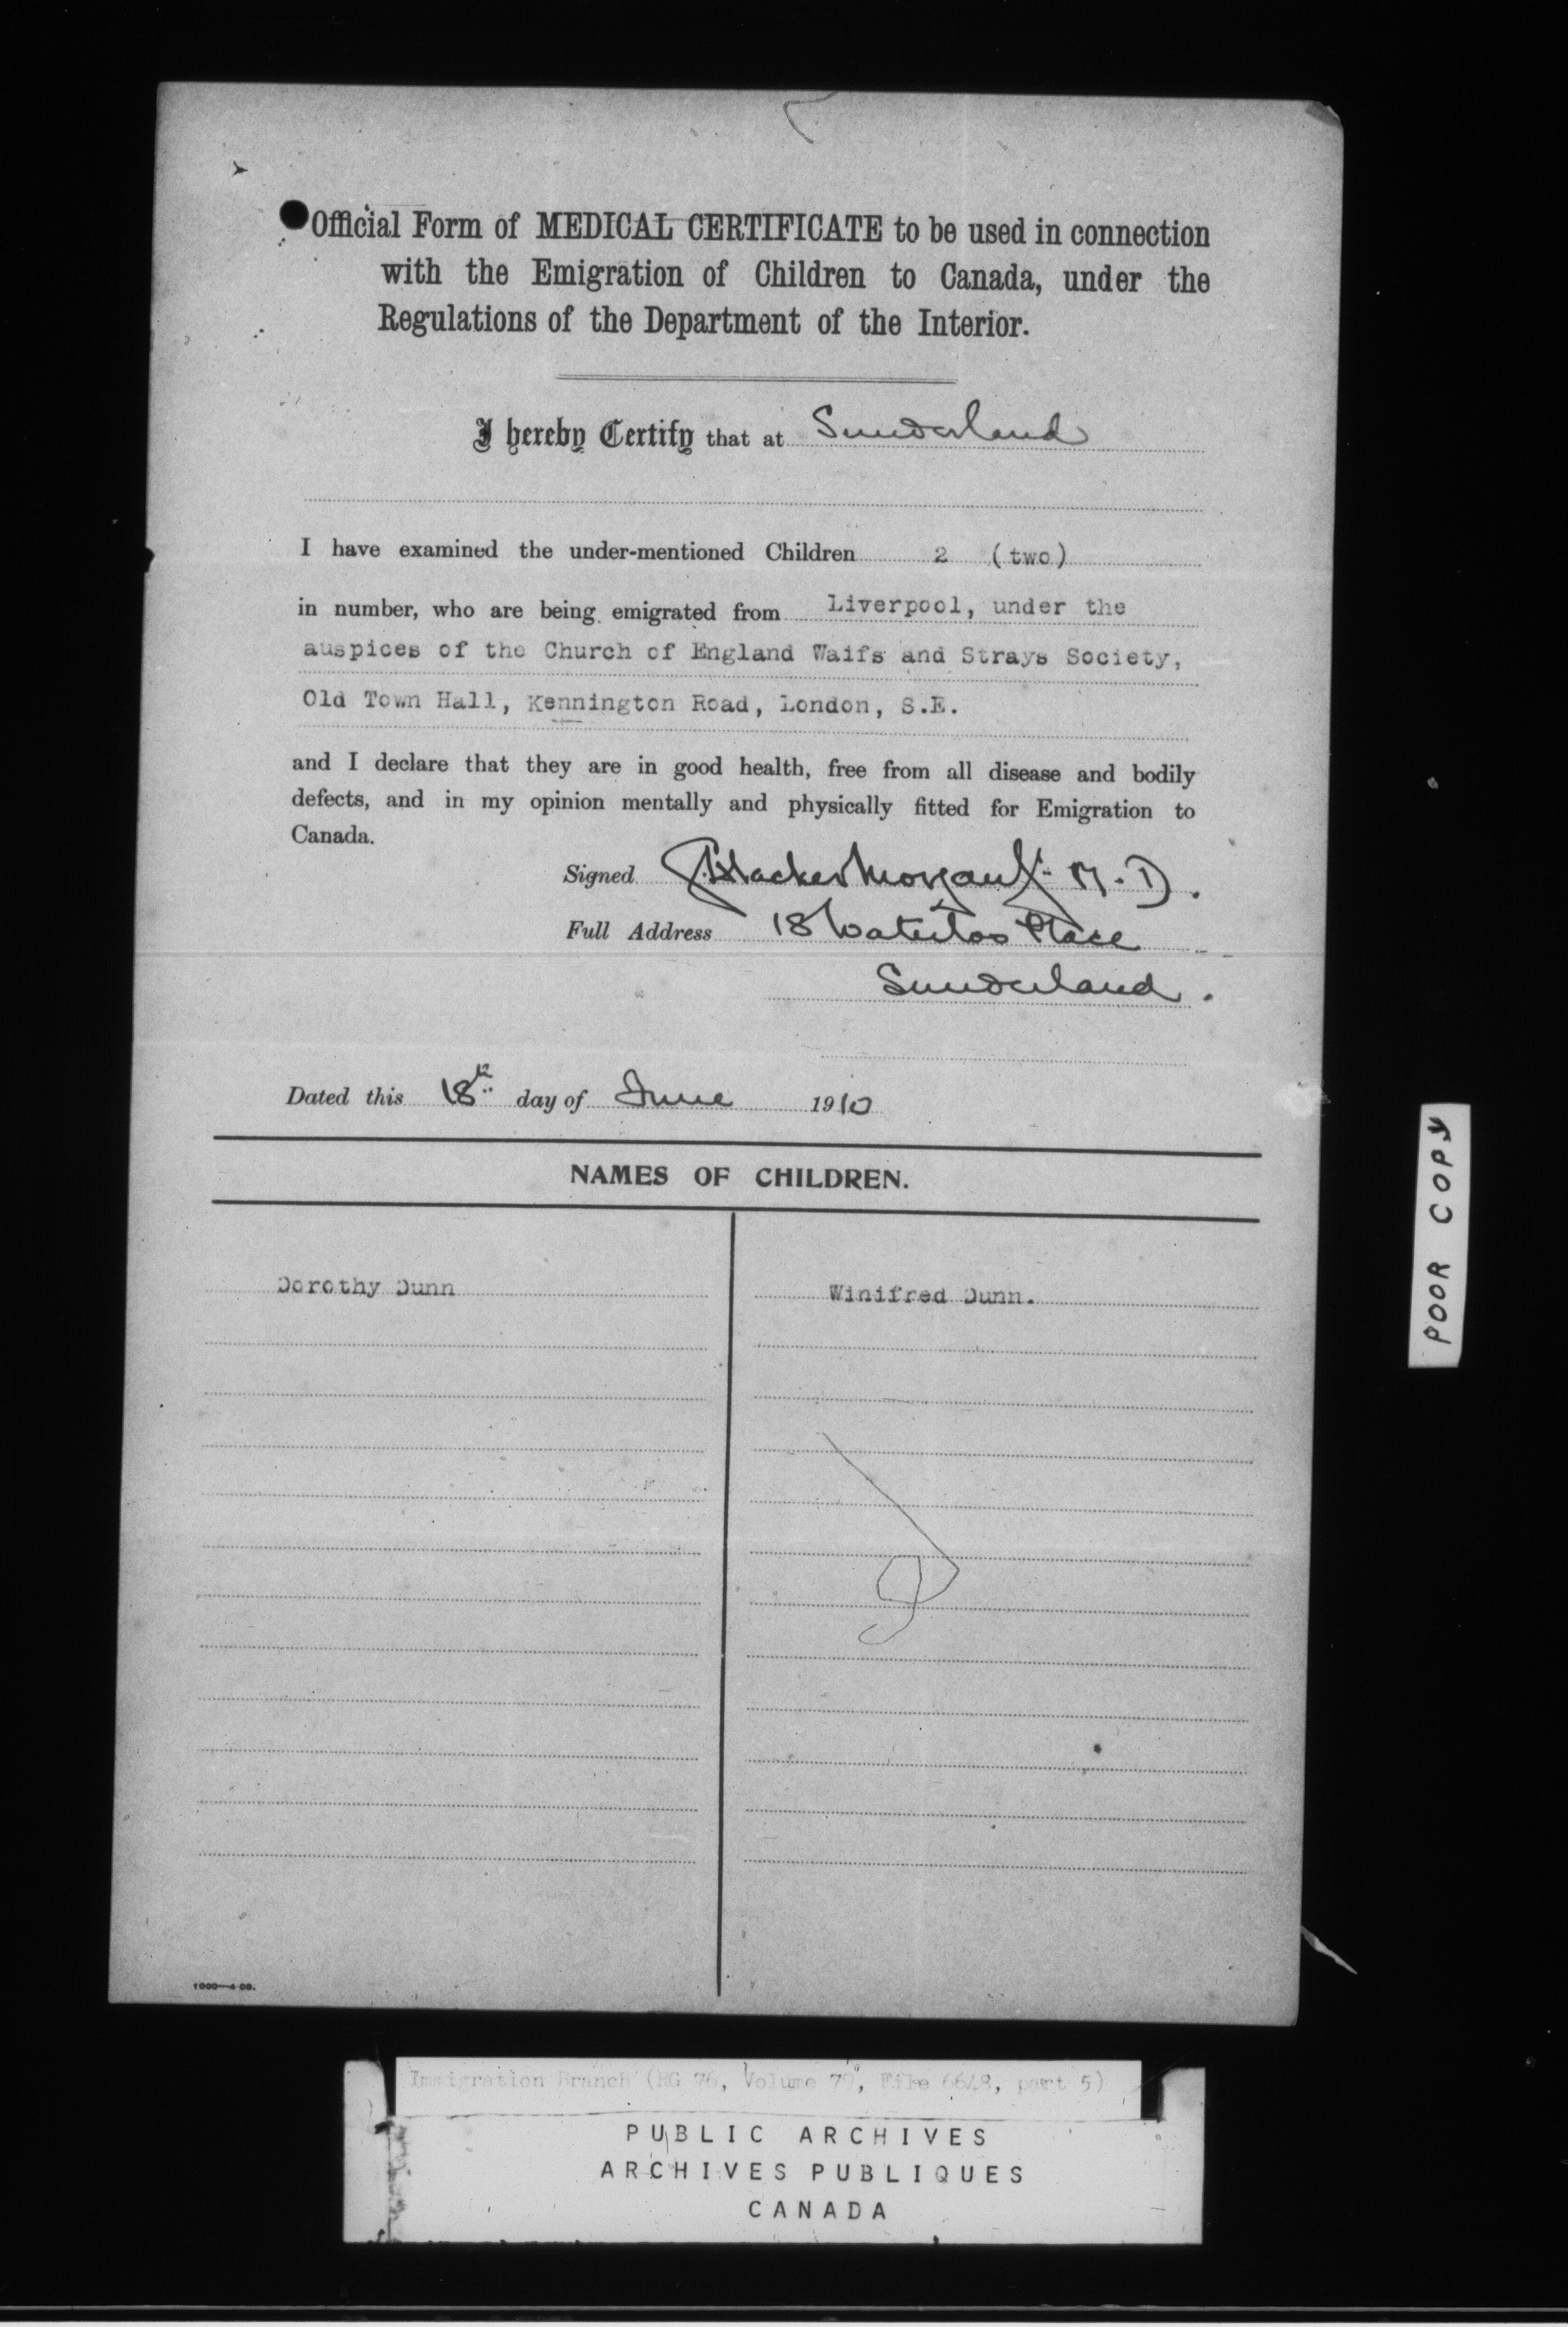 Official Form of MEDICAL CERTIFICATE to be used in connection
with the Emigration of Children to Canada, under the
Regulations of the Department of the Interior.
I hereby Certify that at Sunderland
I have examined the under-mentioned Children 2 (two)
in number, who are being emigrated from Liverpool, under the
auspices of the Church of England Waifs and Strays Society,
Old Town Hall, Kennington Road, London, S.E.
and I declare that they are in good health, free from all disease and bodily
defects, and in my opinion mentally and physically fitted for Emigration to
Canada.
Signed M.D.
Full Address 18 Waterloo Place
Sunderland.
Dated this 18th day of June 1910
NAMES OF CHILDREN.
Dorothy Dunn
Winifred Dunn.
POOR COPY
Immigration Branch (RG 76, Volume File 6648, part 5)
PUBLIC ARCHIVES
ARCHIVES PUBLIQUES
CANADA